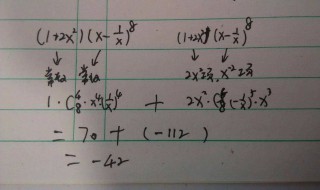 (1+2x²)(x-1/x)⁸ (1+2x²)(x-1/x)⁸
常数 常数 2x²系, x⁻²系
1·C⁴₈·x⁴(1/x)⁴ + 2x²·C⁵₈(-1/x)⁵·x³
= 70 + (-112)
= -42